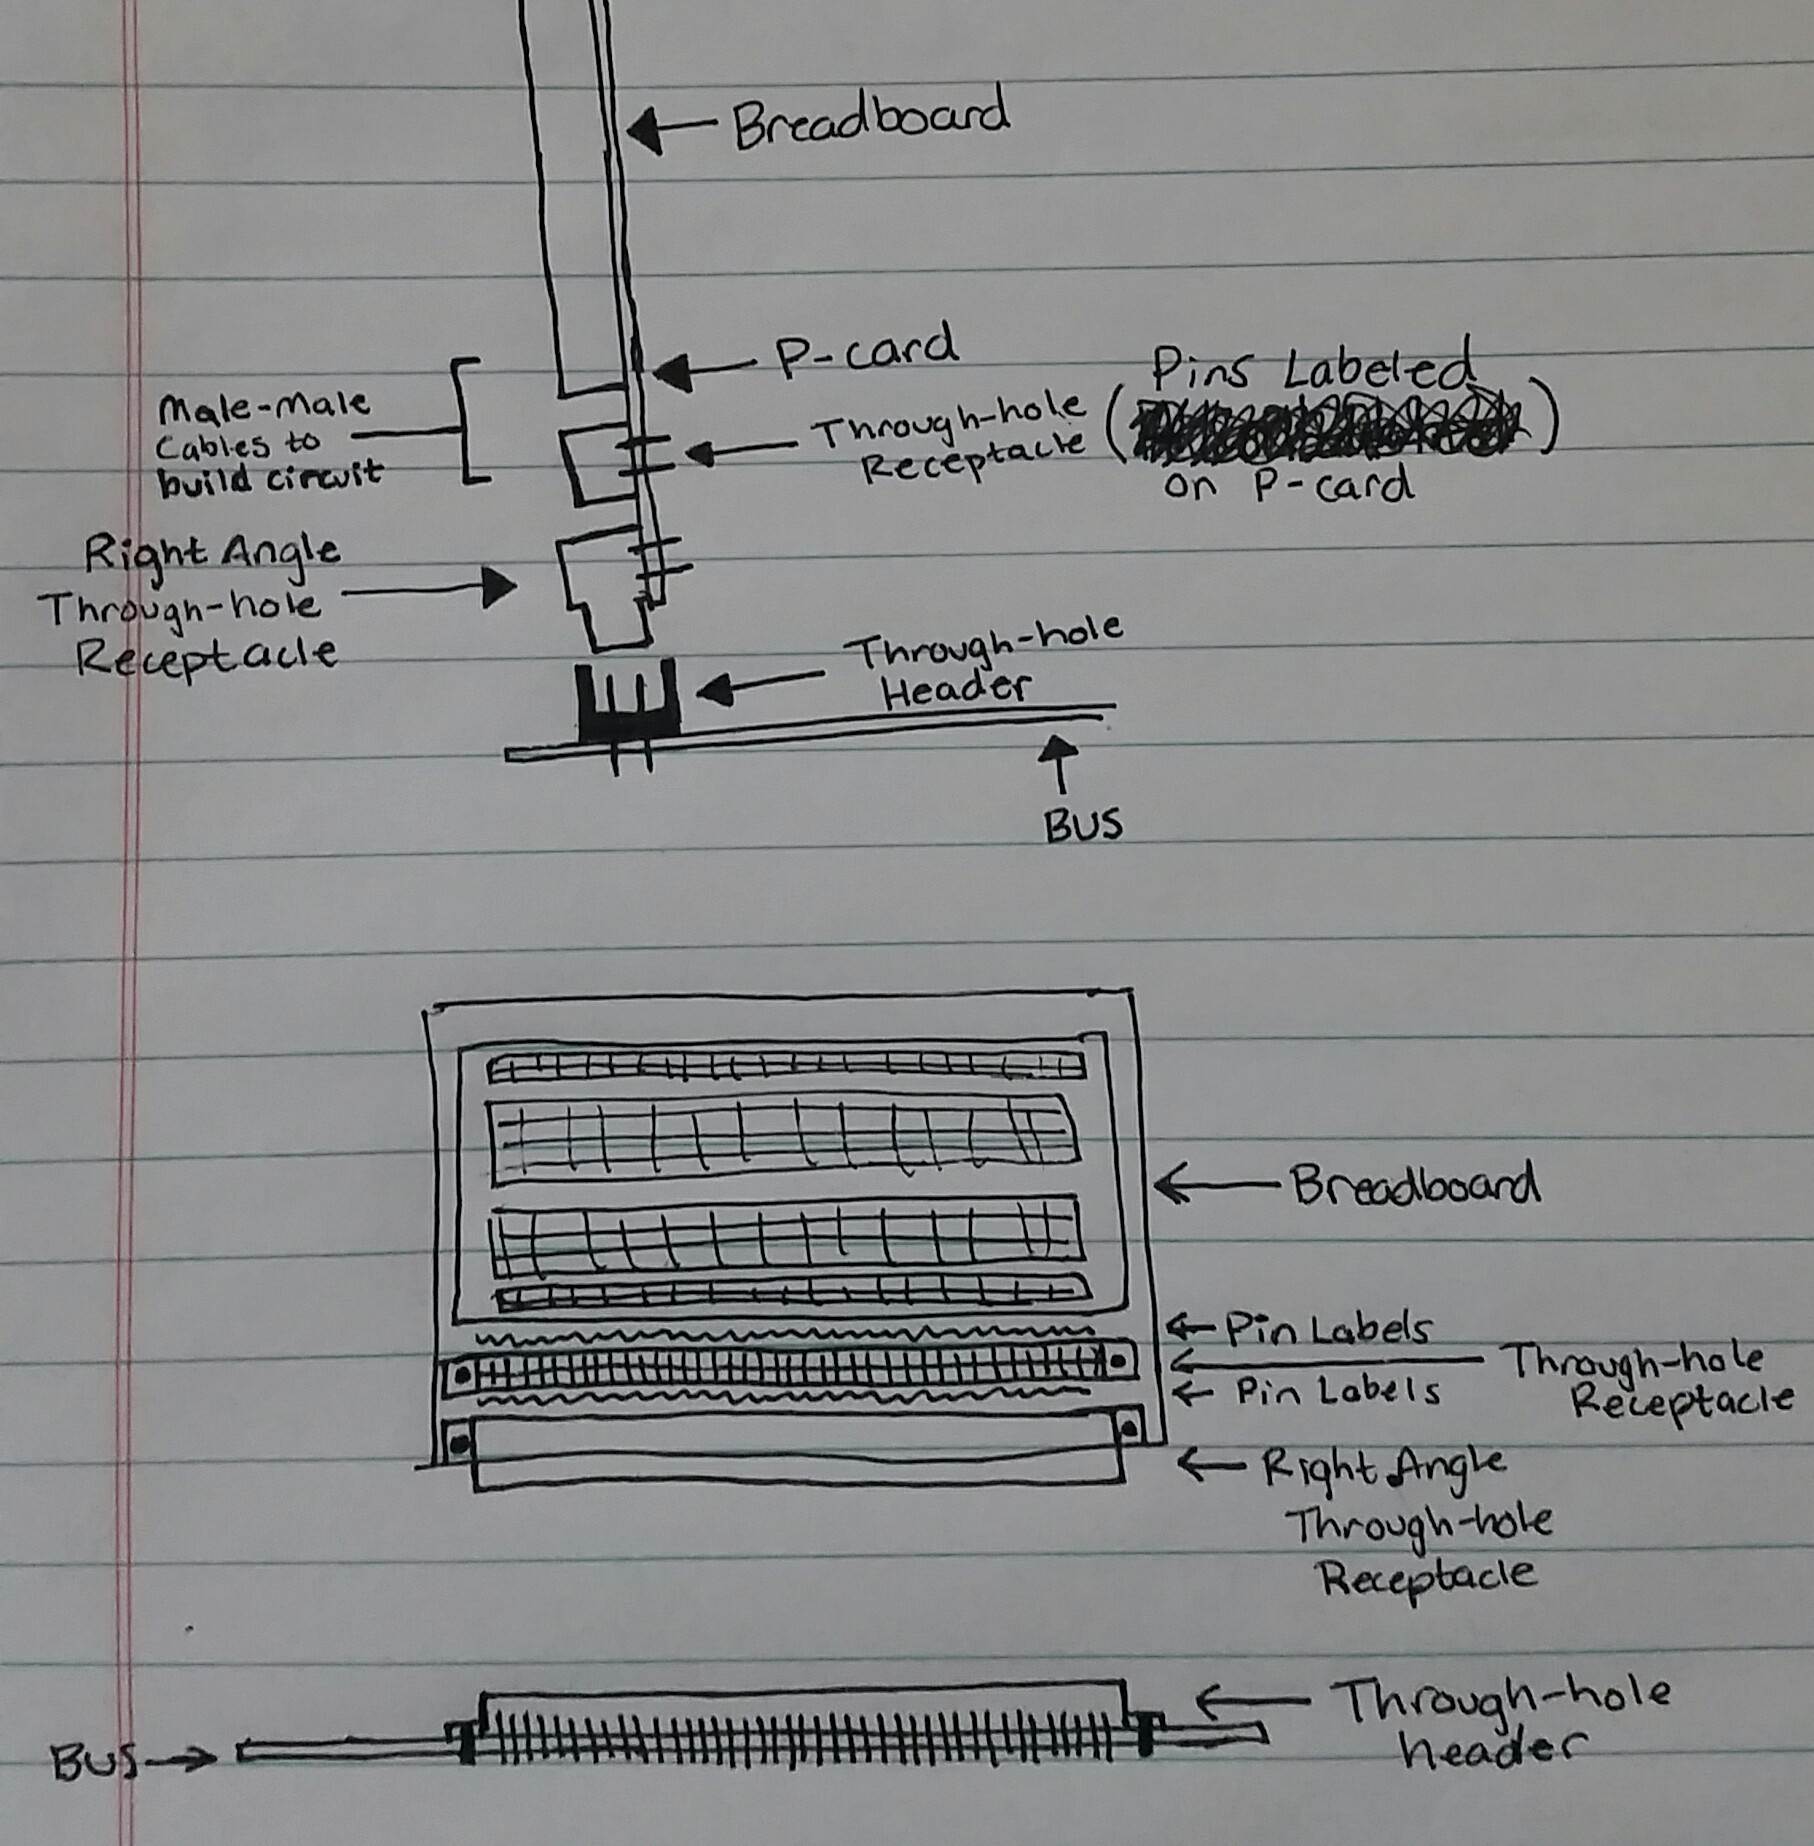 Breadboard
P-card
Pins Labeled
Male-Male
Cables to
build circuit
Through-hole
Receptacle (
)
on P-card
Right Angle
Through-hole
Receptacle
Through-hole
Header
BUS
Breadboard
Pin Labels
Through-hole
Receptacle
Pin Labels
Right Angle
Through-hole
Receptacle
Through-hole
header
BUS